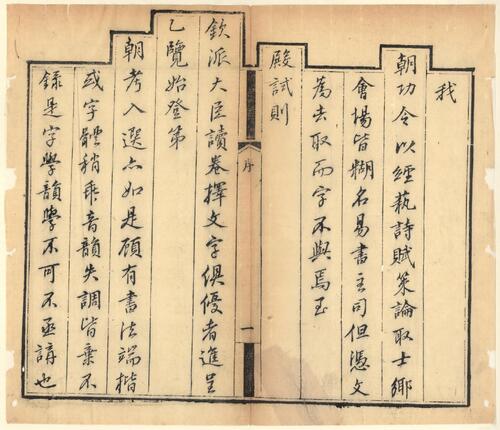 我
朝功令以經藝詩賦策論取士鄉
會場皆糊名易書主司但憑文
為去取而字不與焉至
殿試則
序
一
欽派大臣讀卷擇文字俱優者進呈
乙覽始登第
朝考入選亦如是顧有書法端楷
或字體稍乖音韻失調皆棄不
錄是字學韻學不可不亟講也